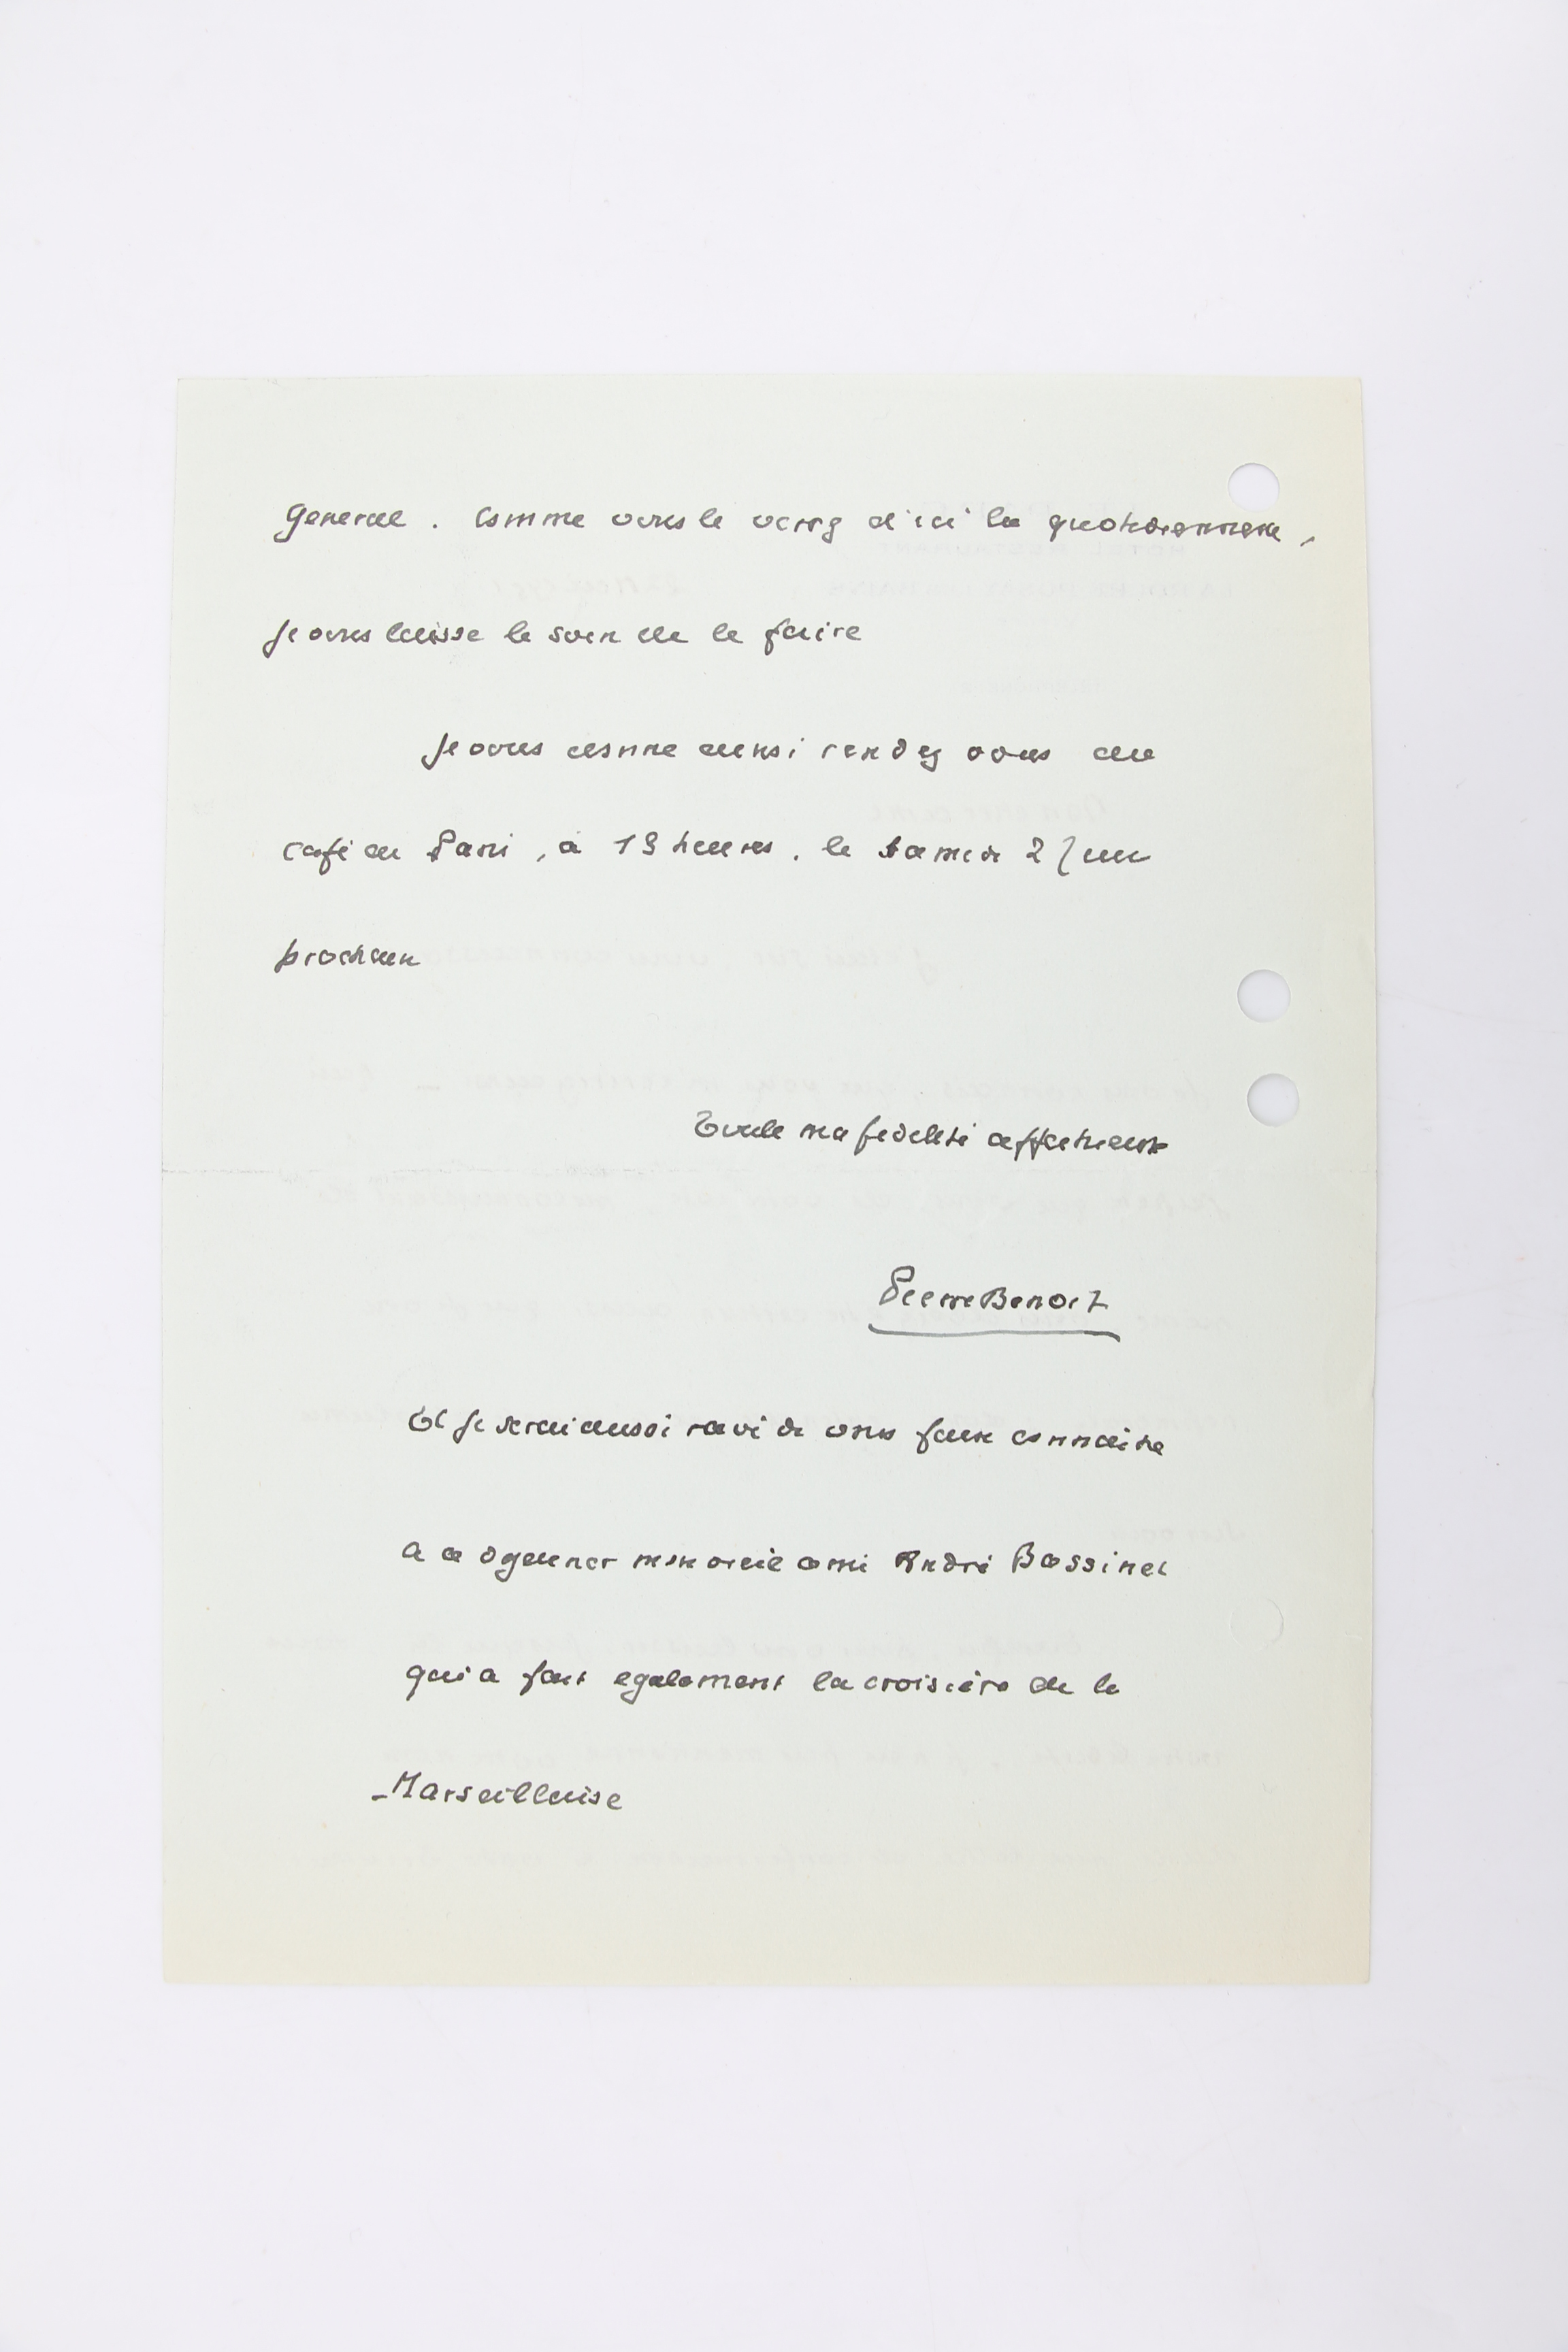 général. Comme vous le voyez d'ici la quotidienne,
je vous laisse le soin de le faire
Je vous donne ainsi rendez vous au
café de Paris, à 13 heures, le samedi 2 Juin
prochain
Toute ma fidèle affection
Pierre Benoit
Et je serai aussi ravi de vous faire connaître
a ce déjeuner mon vieil ami André Bossinet
qui a fait également la croisière de la
Marseillaise